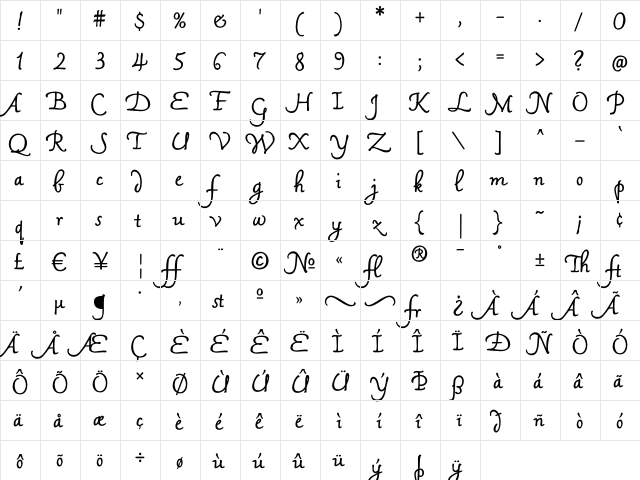 ! " # $ % & ' ( ) * + , - . / 0
1 2 3 4 5 6 7 8 9 : ; < = > ? @
A B C D E F G H I J K L M N O P
Q R S T U V W X Y Z [ \ ] ^ _ `
a b c d e f g h i j k l m n o p
q r s t u v w x y z { | } ~ ¡ ¢
£ € ¥ ¦ ff ¨ © № « fl ® ¯ ° ± Th ft
´ µ ¶ · ¸ st º » fr ¿ À Á Â Ã
Ä Å Æ Ç È É Ê Ë Ì Í Î Ï Ð Ñ Ò Ó
Ô Õ Ö × Ø Ù Ú Û Ü Ý Þ ß à á â ã
ä å æ ç è é ê ë ì í î ï ð ñ ò ó
ô õ ö ÷ ø ù ú û ü ý þ ÿ